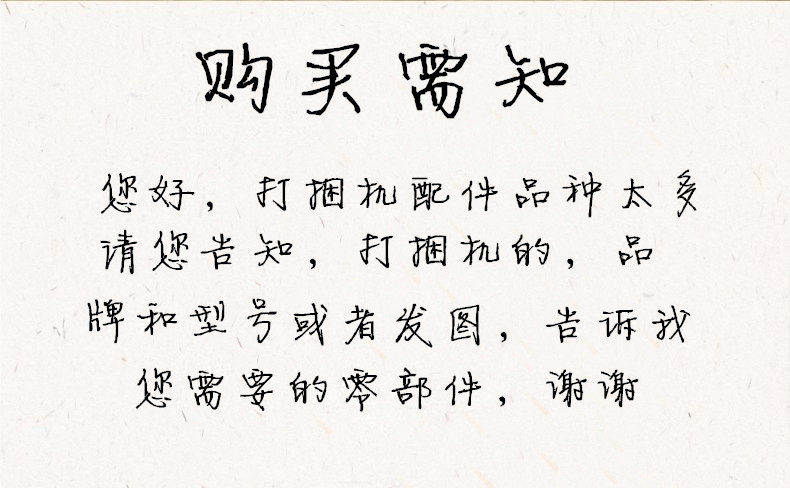 购买需知
您好，打捆机配件品种太多
请您告知，打捆机的，品
牌和型号或者发图，告诉我
您需要的零部件，谢谢